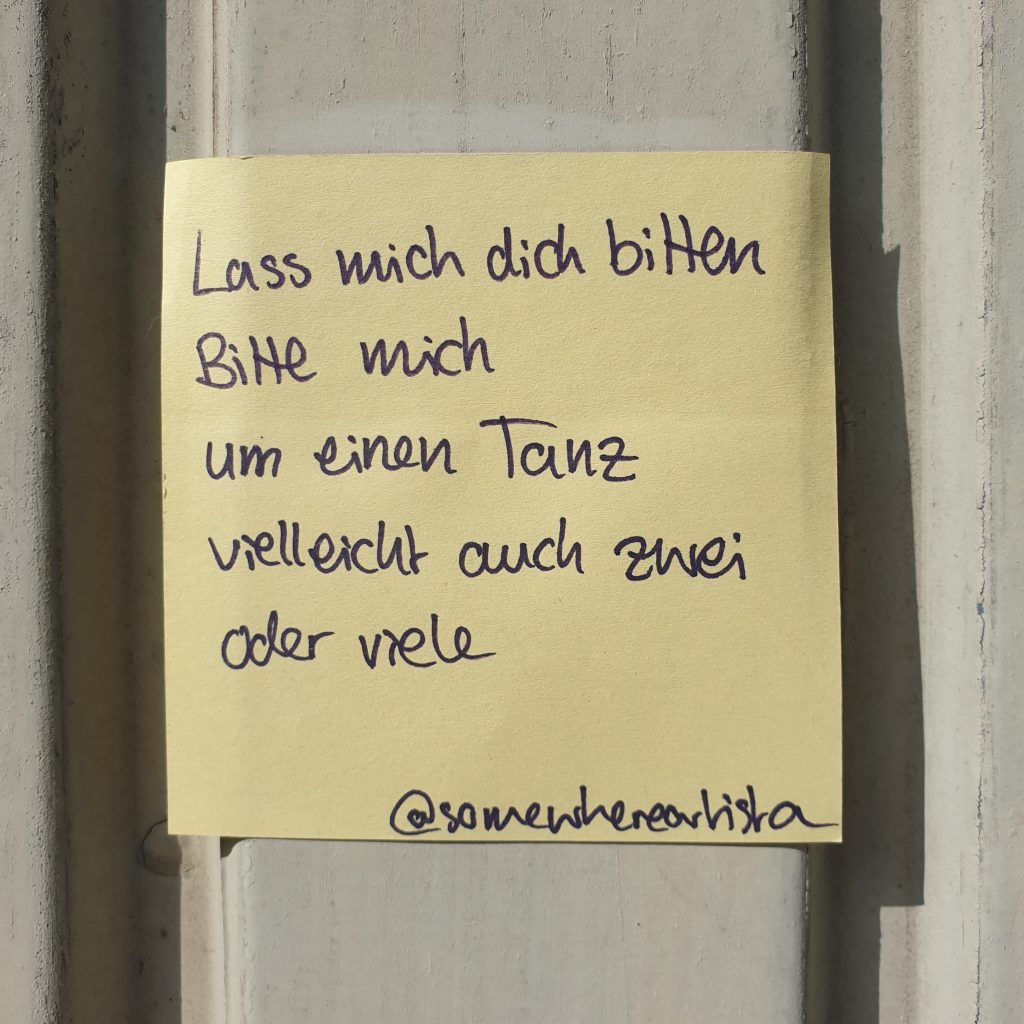 Lass mich dich bitten
Bitte mich
um einen Tanz
vielleicht auch zwei
oder viele
@somewhereartista